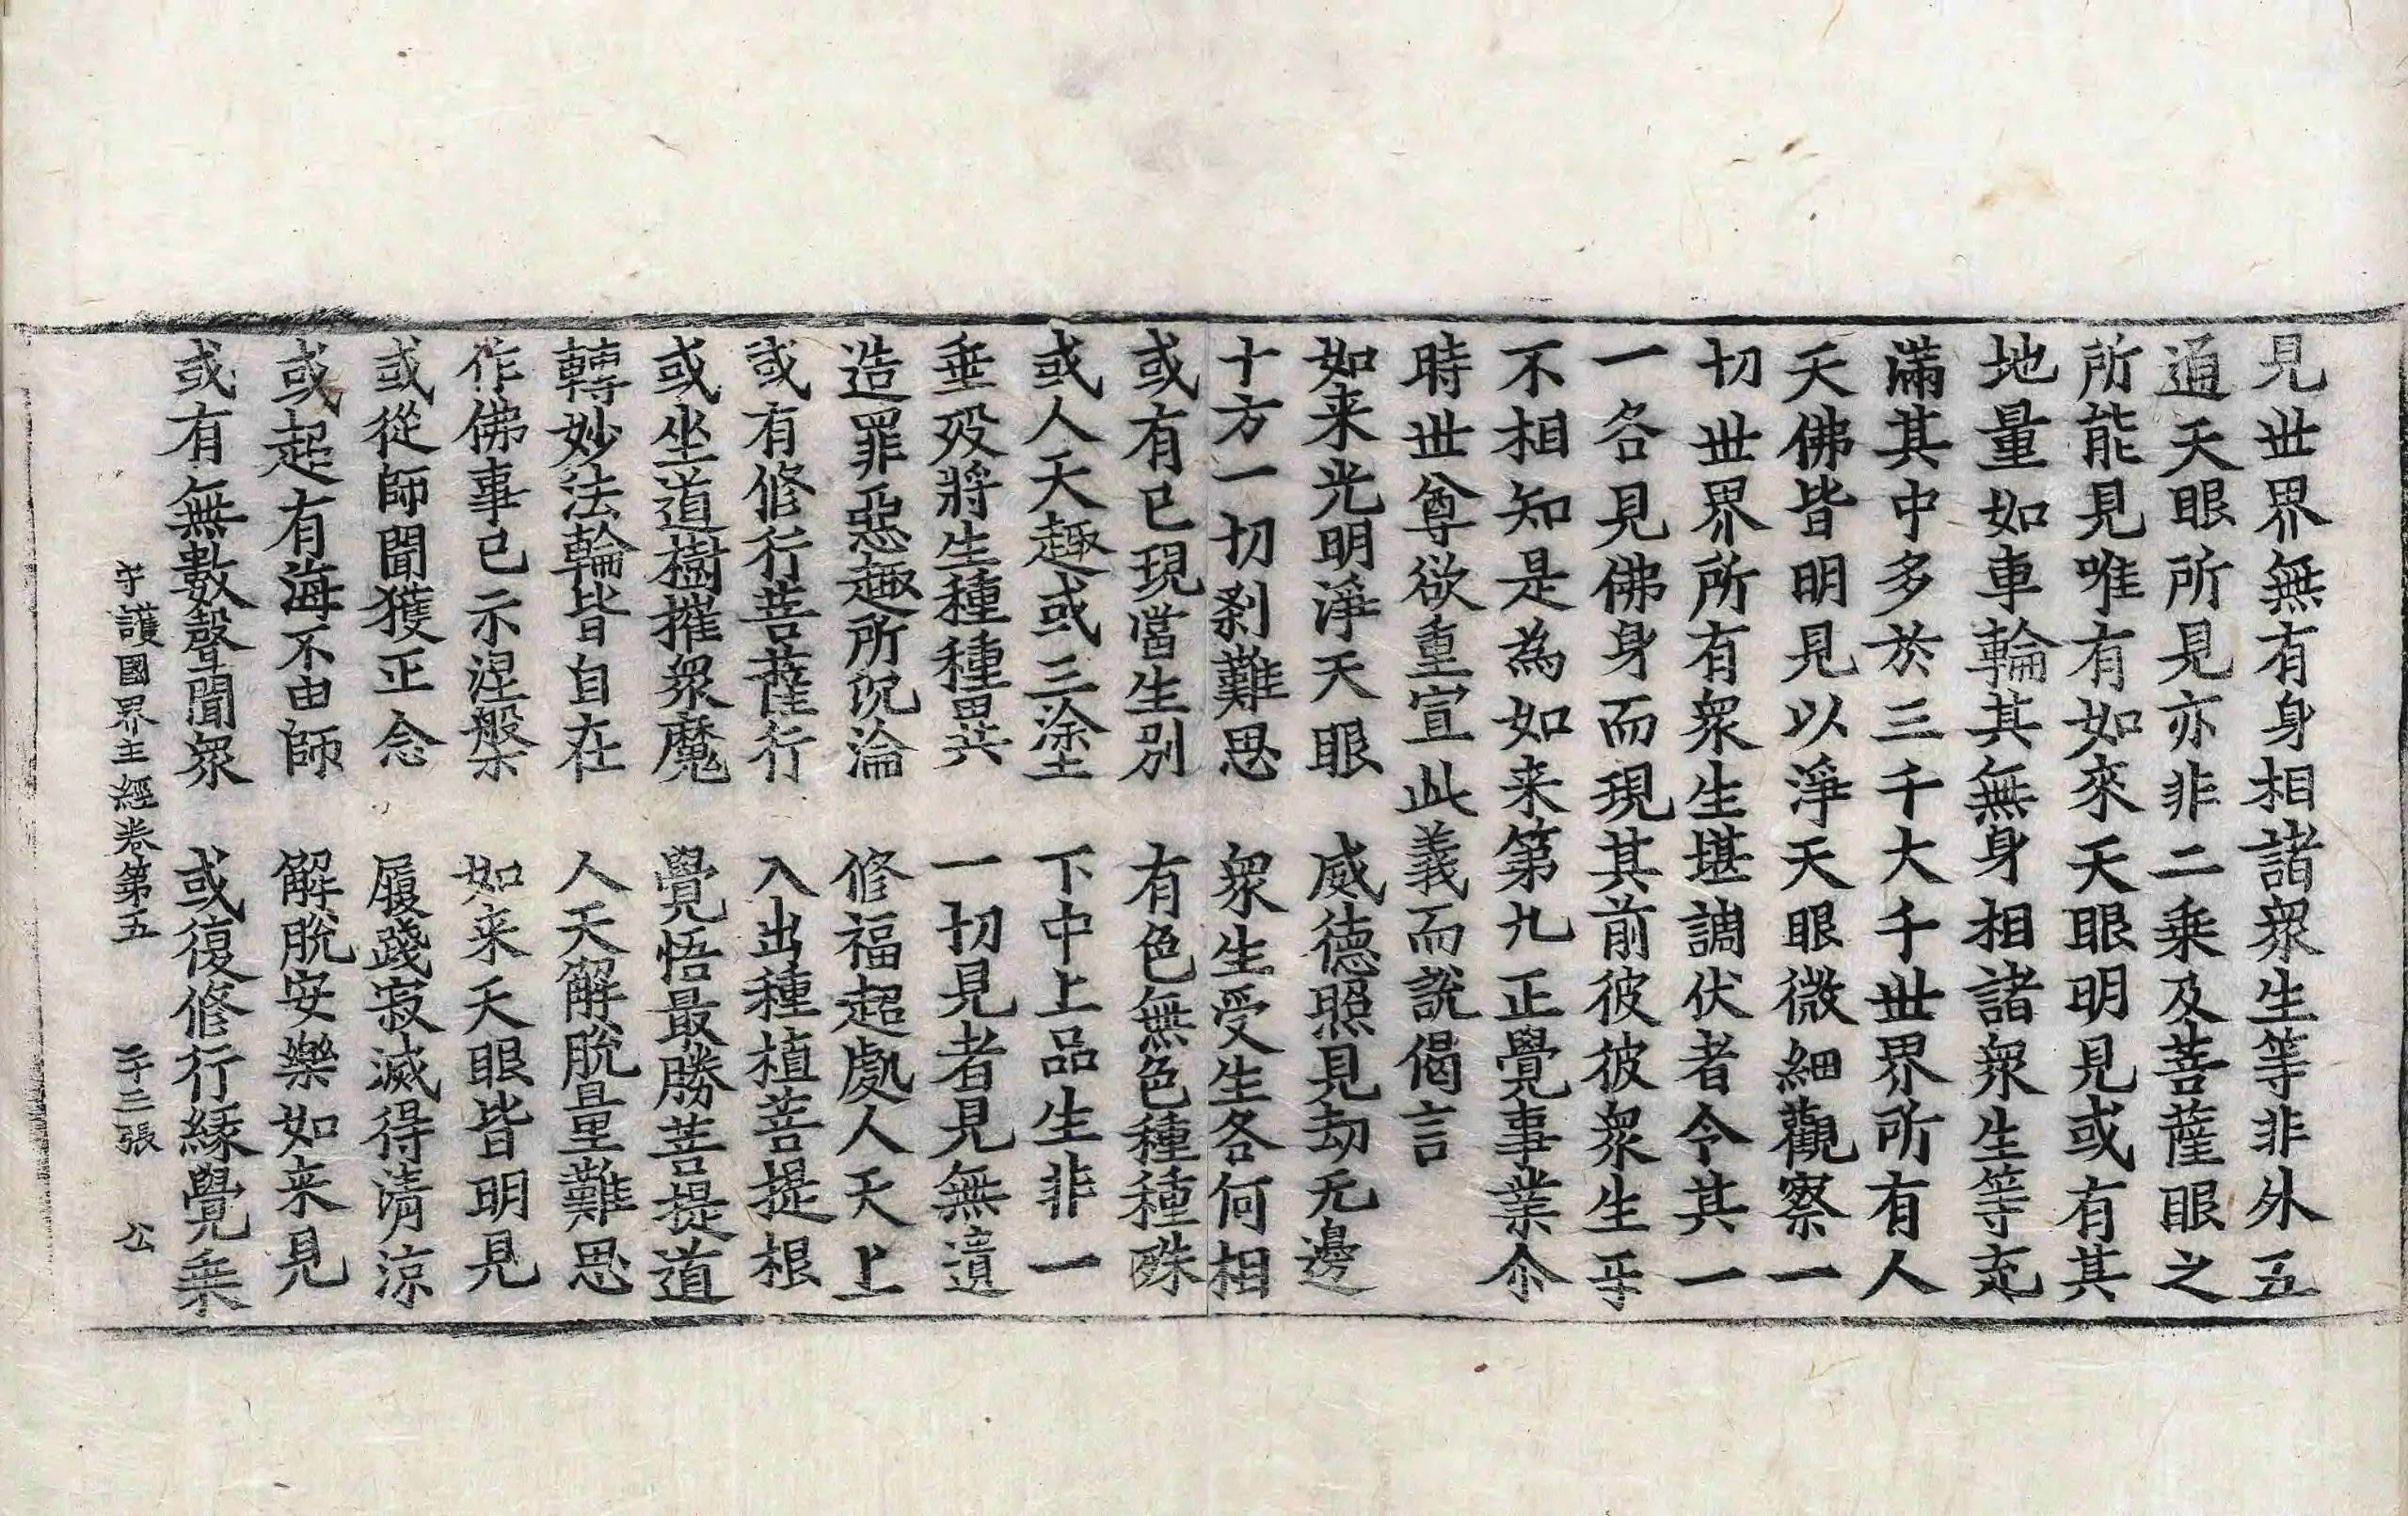 見世界無有身相諸衆生等非外五
通天眼所見亦非二乗及菩薩眼之
所能見唯有如來天眼明見或有其
地量如車輪其無身相諸衆生等充
滿其中多於三千大千世界所有人
天佛皆明見以淨天眼微細觀察一
切世界所有衆生堪調伏者令其一
一各見佛身而現其前彼彼衆生乎
不相知是為如来第九正覺事業尒
時世尊欲重宣此義而說偈言
如来光明淨天眼　威德照見劫无邊
十方一切刹難思　衆生受生各何相
或有已現當生別　有色無色種種殊
或人天趣或三塗　下中上品生非一
垂歿將生種種異　一切見者見無遺
造罪惡趣所沉淪　修福超處人天上
或有修行菩薩行　入出種植菩提根
或坐道樹摧衆魔　覺悟最勝菩提道
轉妙法輪皆自在　人天解脫量難思
作佛事已示涅槃　如来天眼皆明見
或從師聞獲正念　履踐寂滅得清涼
或起有海不由師　解脫安樂如来見
或有無數聲聞衆　或復修行縁覺乗
守護國界主經卷第五　二十二張　公